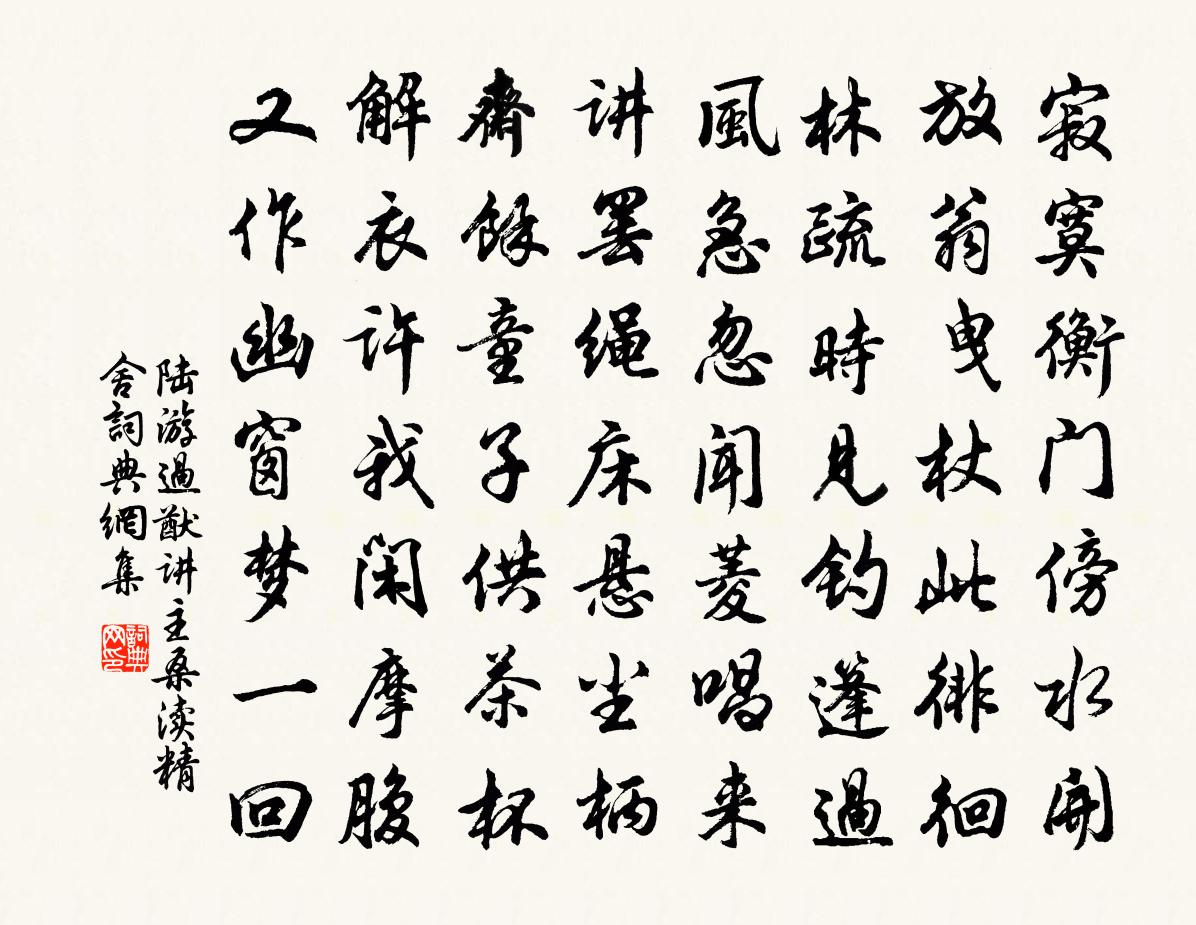 寂寞衡门傍水開
放翁曳杖此徘徊
林疏時見钓篷過
風急忽闻菱唱来
讲罢绳床悬尘柄
齋餘童子供茶杯
解衣许我闲摩腹
又作幽窗梦一回
陆游過猷讲主桑渎精
舍詞典網集
詞典
网印